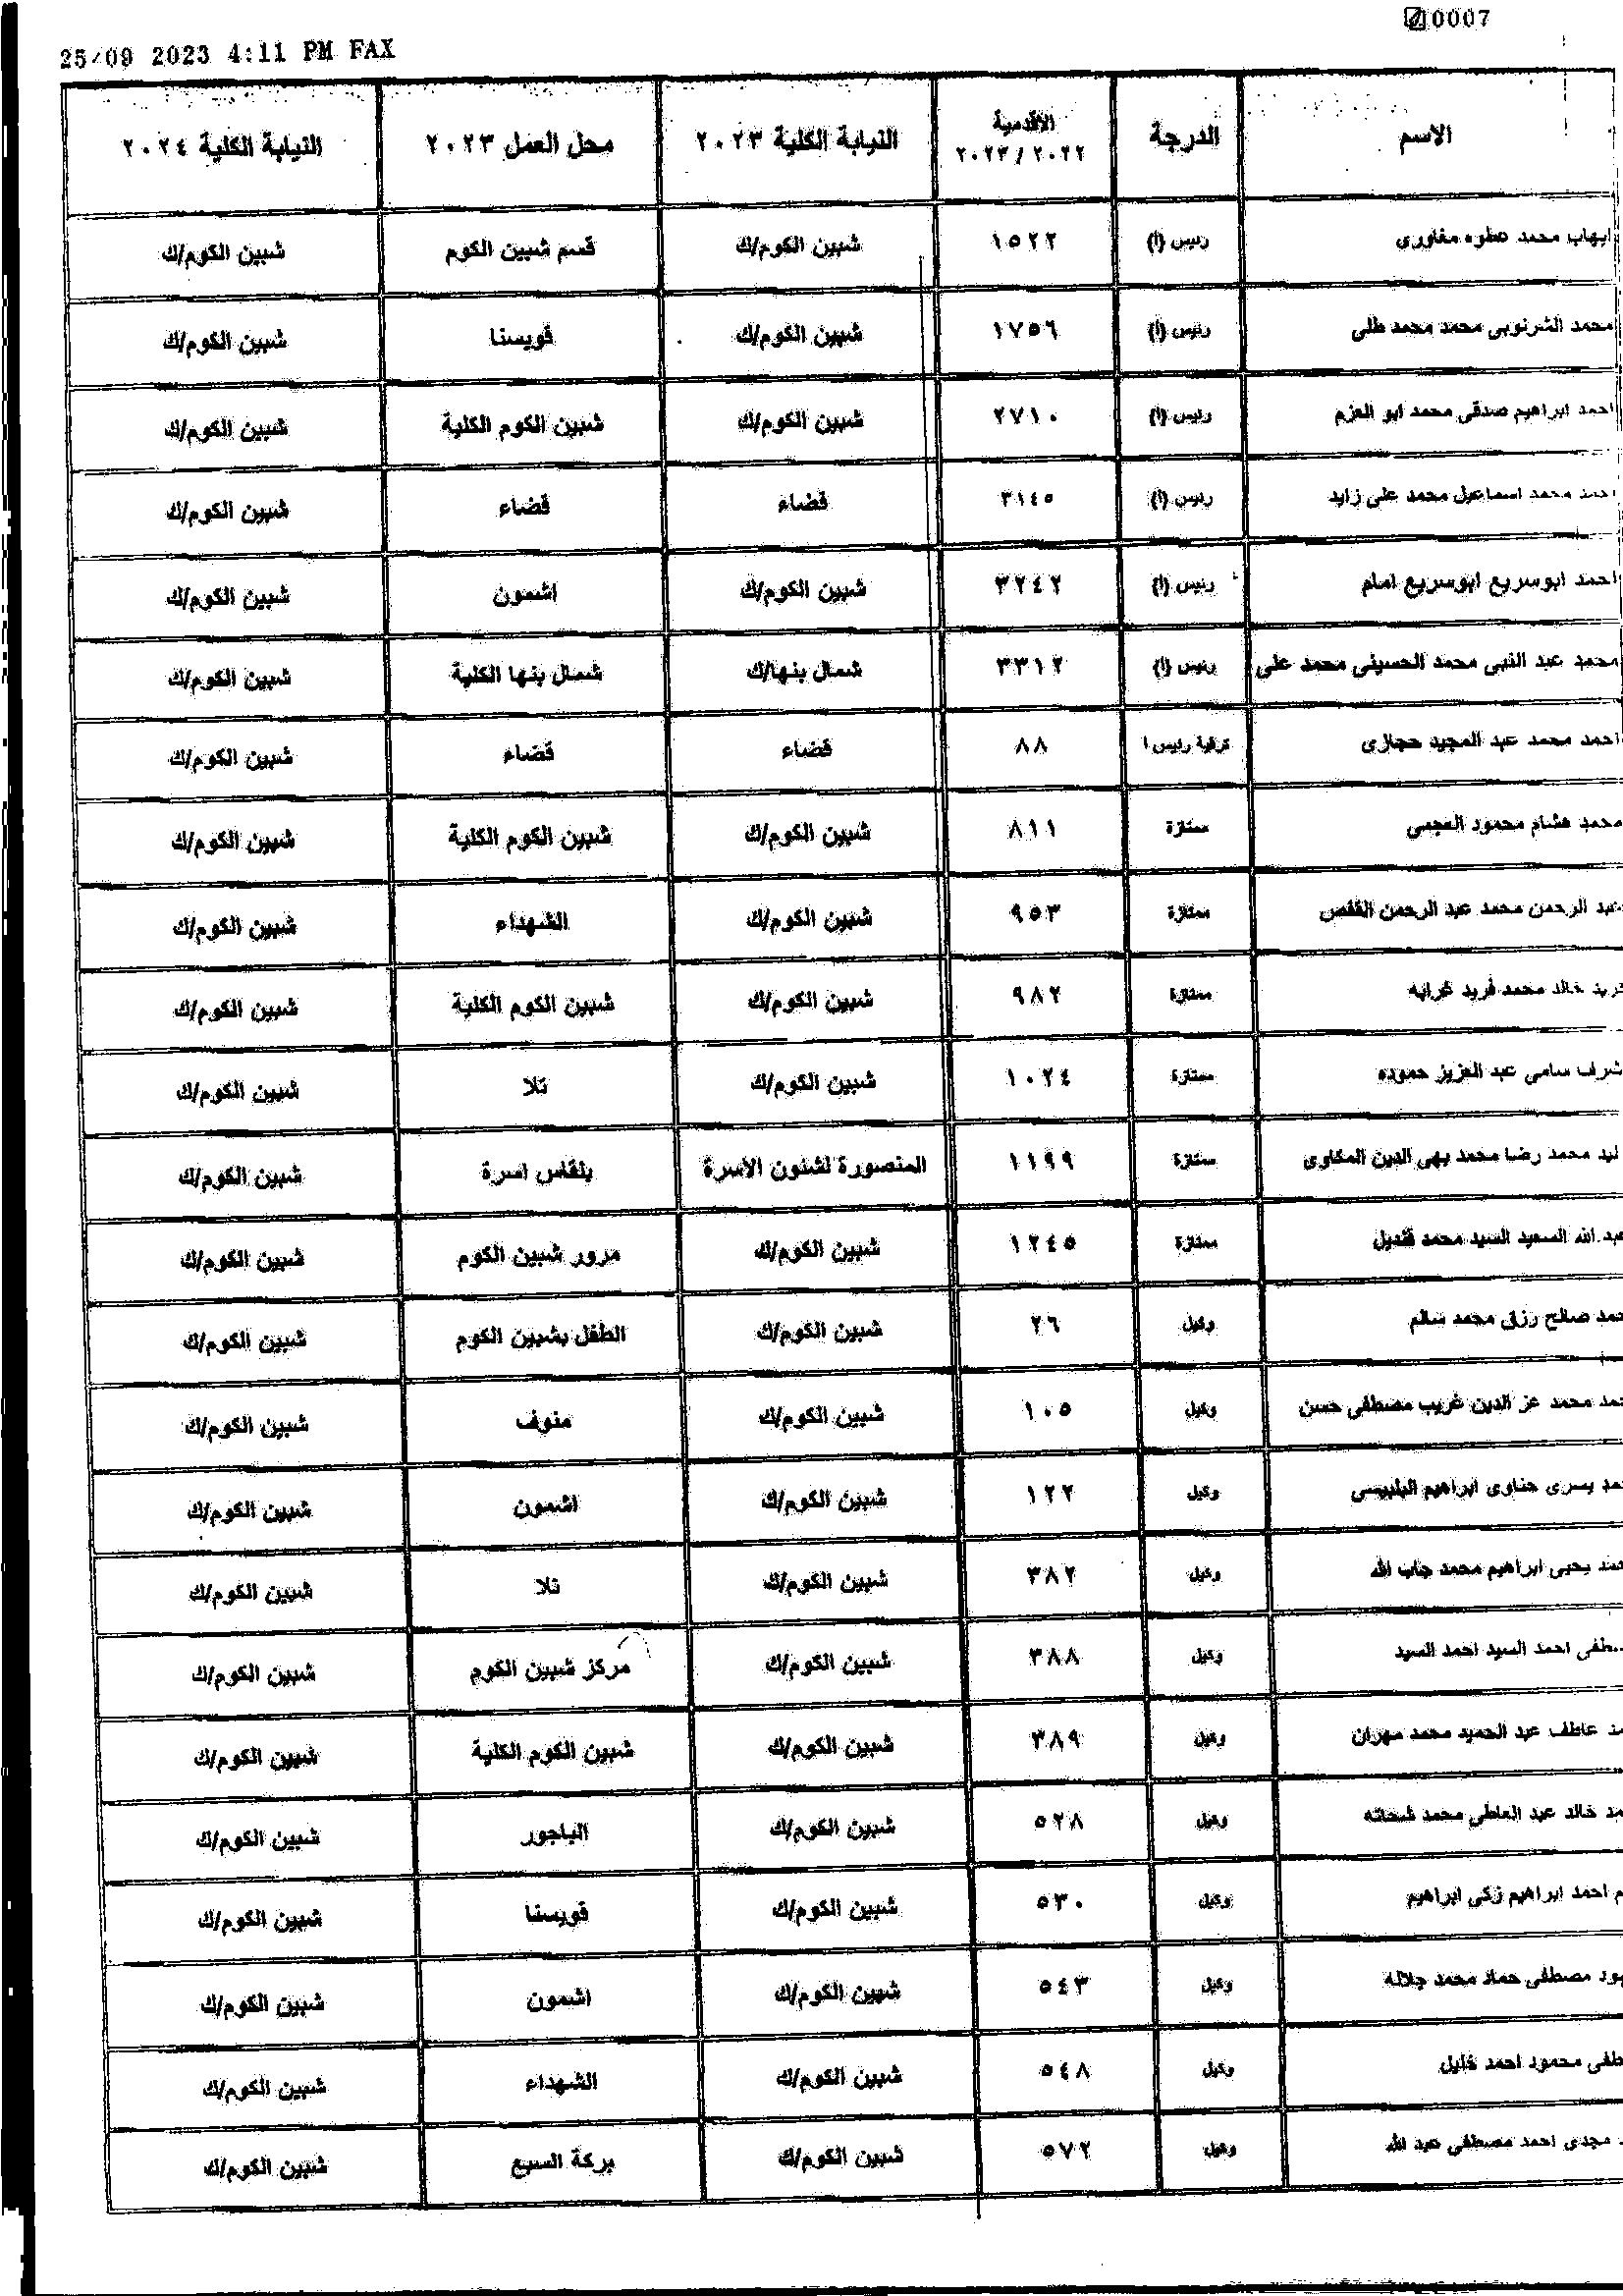 0007
25/09 2023 4:11 PM FAX
الاسم الدرجة الأقدمية ٢٠٢٢ / ٢٠٢٣ النيابة الكلية ٢٠٢٣ محل العمل ٢٠٢٣ النيابة الكلية ٢٠٢٤
ايهاب محمد عطوه مغاورى رئيس (أ) ١٥٢٢ شبين الكوم/ك قسم شبين الكوم شبين الكوم/ك
محمد الشرنوبى محمد محمد طلى رئيس (أ) ١٧٥٦ شبين الكوم/ك قويسنا شبين الكوم/ك
احمد ابراهيم صدقى محمد ابو العزم رئيس (أ) ٢٧١٠ شبين الكوم/ك شبين الكوم الكلية شبين الكوم/ك
احمد محمد اسماعيل محمد على زايد رئيس (أ) ٣١٤٥ قضاء قضاء شبين الكوم/ك
احمد ابوسريع ابوسريع امام رئيس (أ) ٣٢٤٢ شبين الكوم/ك اشمون شبين الكوم/ك
محمد عبد النبى محمد الحسينى محمد على رئيس (أ) ٣٣١٢ شمال بنها/ك شمال بنها الكلية شبين الكوم/ك
احمد محمد عبد المجيد حجازى ترقية رئيس ا ٨٨ قضاء قضاء شبين الكوم/ك
محمد هشام محمود العجمى ممتازة ٨١١ شبين الكوم/ك شبين الكوم الكلية شبين الكوم/ك
عبد الرحمن محمد عبد الرحمن القفص ممتازة ٩٥٣ شبين الكوم/ك الشهداء شبين الكوم/ك
خالد محمد فريد ممتازة ٩٨٢ شبين الكوم/ك شبين الكوم الكلية شبين الكوم/ك
شرف سامى عبد العزيز حموده ممتازة ١٠٢٤ شبين الكوم/ك تلا شبين الكوم/ك
ليد محمد رضا محمد بهى الدين المكاوى ممتازة ١١٩٩ المنصورة لشئون الأسرة بلقاس اسرة شبين الكوم/ك
بد الله السعيد السيد محمد قنديل ممتازة ١٢٤٥ شبين الكوم/ك مرور شبين الكوم شبين الكوم/ك
حمد صالح رزق محمد سالم وكيل ٢٦ شبين الكوم/ك الطفل بشبين الكوم شبين الكوم/ك
حمد محمد عز الدين غريب مصطفى حسن وكيل ١٠٥ شبين الكوم/ك منوف شبين الكوم/ك
حمد يسرى حناوى ابراهيم البلبيسى وكيل ١٢٢ شبين الكوم/ك اشمون شبين الكوم/ك
حمد يحيى ابراهيم محمد جاب الله وكيل ٣٨٢ شبين الكوم/ك تلا شبين الكوم/ك
طفى احمد السيد احمد السيد وكيل ٣٨٨ شبين الكوم/ك مركز شبين الكوم شبين الكوم/ك
مد عاطف عبد الحميد محمد مهران وكيل ٣٨٩ شبين الكوم/ك شبين الكوم الكلية شبين الكوم/ك
مد خالد عبد العاطى محمد شحاته وكيل ٥٢٨ شبين الكوم/ك الباجور شبين الكوم/ك
م احمد ابراهيم زكى ابراهيم وكيل ٥٣٠ شبين الكوم/ك قويسنا شبين الكوم/ك
ود مصطفى حماد محمد جلاله وكيل ٥٤٣ شبين الكوم/ك اشمون شبين الكوم/ك
طفى محمود احمد خليل وكيل ٥٤٨ شبين الكوم/ك الشهداء شبين الكوم/ك
مجدى احمد مصطفى عبد الله وكيل ٥٧٢ شبين الكوم/ك بركة السبع شبين الكوم/ك